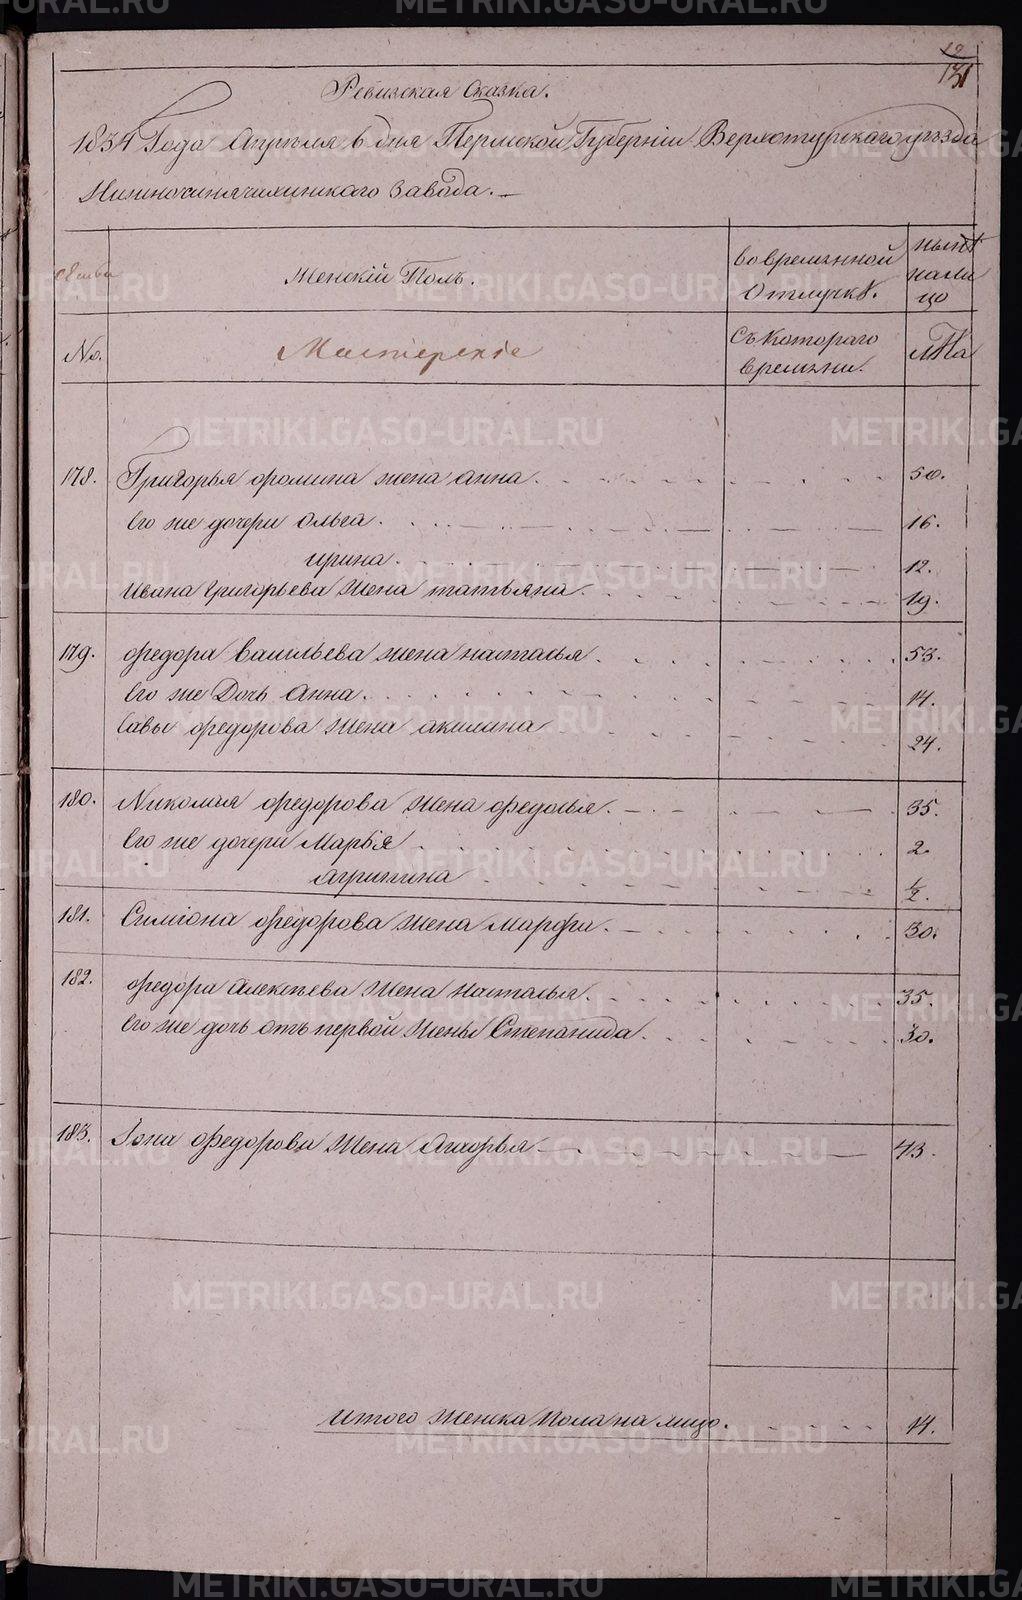 12
131
Ревизская Сказка.
1834 Года Апреля 6 дня Пермской Губернии Верхотурскаго уезда
Нижносинячихинскаго Завода.
семьи
Женскій Полъ.
Во временной
Отлучке.
ныне
нали
цо
№.
Мастерскіе
Съ Котораго
времени.
лета
178. Григорья Фомина жена анна. 50.
Его же дочери Ольга. 16.
ирина. 12.
Ивана Григорьева Жена татьяна. 19.
179. Федора Васильева жена наталья. 53.
Его же Дочь Анна. 14.
Савы Федорова Жена акилина 24.
180. Николая Федорова Жена Федосья. 35.
Его же дочери Марья 2.
агрипина ½.
181. Симіона Федорова Жена Марфа. 30.
182. Федора Алексеева Жена Наталья. 35.
Его же дочь отъ первой Жены Степанида. 30.
183. Іона Федорова Жена 43.
Итого Женска Пола на лицо. 14.
METRIKI.GASO-URAL.RU